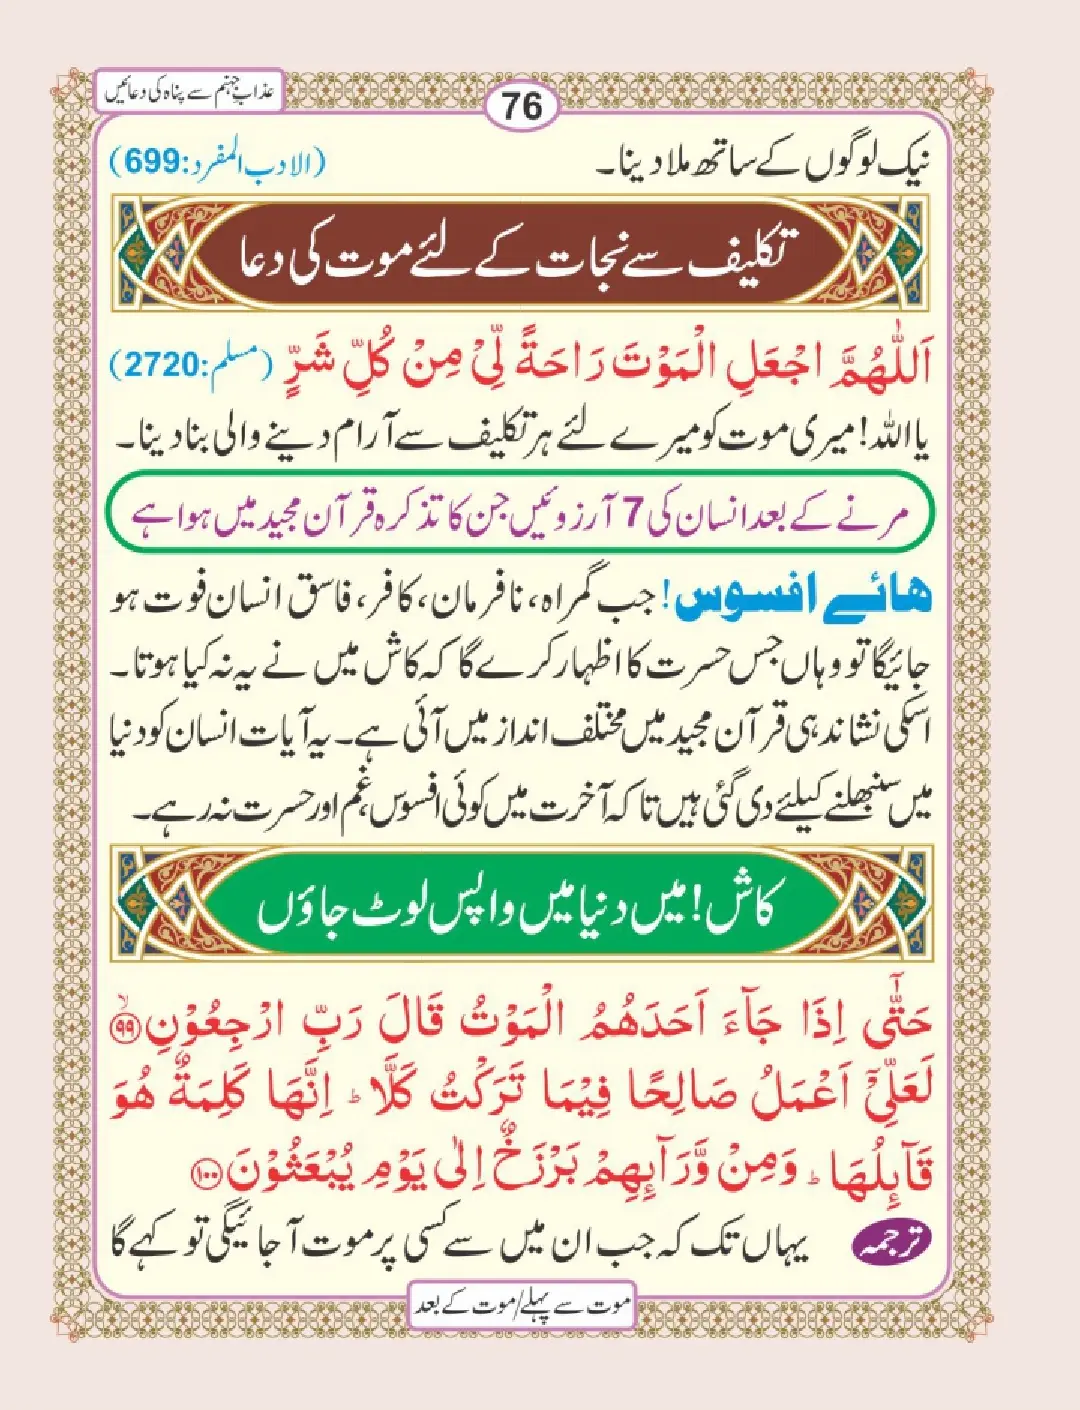 عذابِ جہنم سے پناہ کی دعائیں
76
نیک لوگوں کے ساتھ ملا دینا۔ (الادب المفرد:699)
تکلیف سے نجات کے لئے موت کی دعا
اَللّٰهُمَّ اجْعَلِ الْمَوْتَ رَاحَةً لِّیْ مِنْ كُلِّ شَرٍّ (مسلم:2720)
یا اللہ! میری موت کو میرے لئے ہر تکلیف سے آرام دینے والی بنا دینا۔
مرنے کے بعد انسان کی 7 آرزوئیں جن کا تذکرہ قرآن مجید میں ہوا ہے
ہائے افسوس! جب گمراہ، نافرمان، کافر، فاسق انسان فوت ہو
جائیگا تو وہاں جس حسرت کا اظہار کرے گا کہ کاش میں نے یہ نہ کیا ہوتا۔
اسکی نشاندہی قرآن مجید میں مختلف انداز میں آئی ہے۔ یہ آیات انسان کو دنیا
میں سنبھلنے کیلئے دی گئی ہیں تاکہ آخرت میں کوئی افسوس، غم اور حسرت نہ رہے۔
کاش! میں دنیا میں واپس لوٹ جاؤں
حَتّٰۤى اِذَا جَآءَ اَحَدَهُمُ الْمَوْتُ قَالَ رَبِّ ارْجِعُوْنِ ۙ﴿۹۹﴾
لَعَلِّیْۤ اَعْمَلُ صَالِحًا فِیْمَا تَرَكْتُ كَلَّا ؕ اِنَّهَا كَلِمَةٌ هُوَ
قَآىِٕلُهَا ؕ وَمِنْ وَّرَآىِٕهِمْ بَرْزَخٌ اِلٰى یَوْمِ یُبْعَثُوْنَ ﴿۱۰۰﴾
ترجمہ یہاں تک کہ جب ان میں سے کسی پر موت آجائیگی تو کہے گا
موت سے پہلے/موت کے بعد